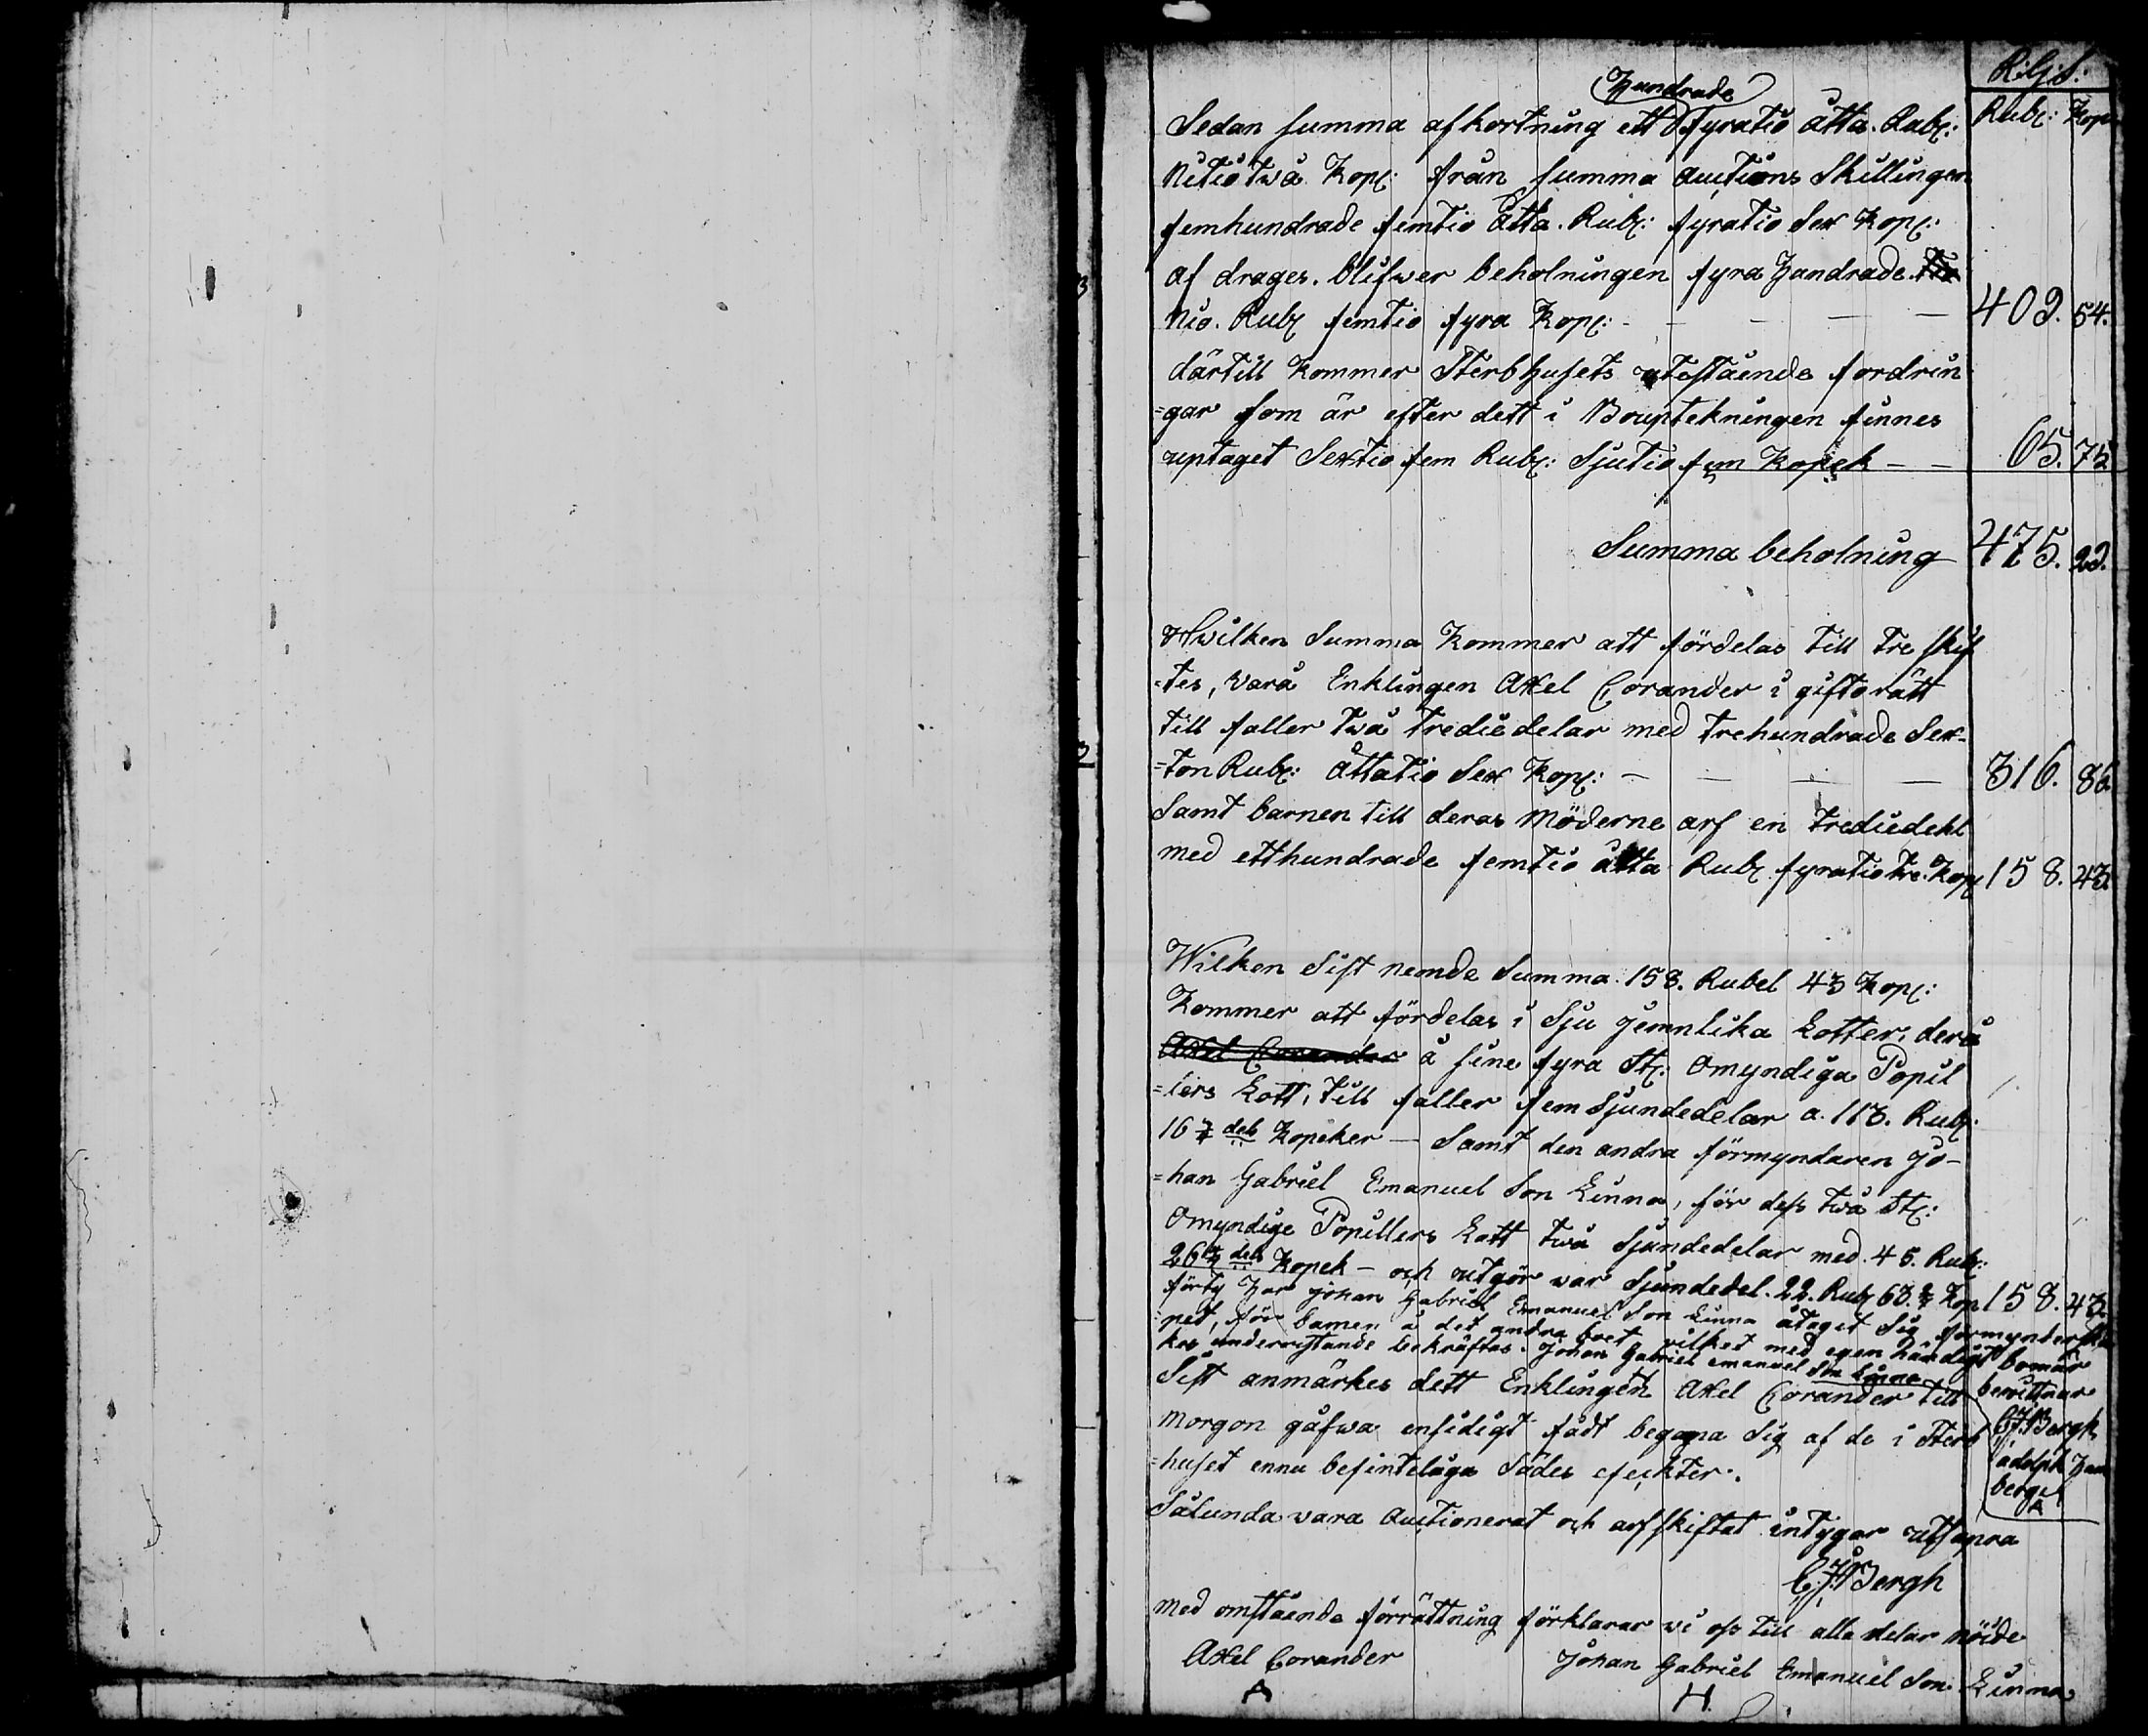 R:Gj:S:
Rub: Kop
Hundrade
Sedan summa afkortning ett fyratio åtta. Rub:
Nitio twå Kop: från summa Auctions Skillingen
femhundrade femtio åtta. Rub: fyratio Sex Kop:
af drages. blifwer beholningen fyra Hundrade
Nio. Rub: femtio fyra Kop: - - - - - 409. 54.
därtill Kommer Sterbhusets utestående fordrin
=gar som är efter dett i Bouptekningen finnes
uptaget Sextio fem Rub: Sjutio fem Kopek - - 65. 75
Summa beholning 475. 29.
Hwilken Summa Kommer att fördelas till tre skif
=tes, varå Enklingen Axel Corander i giftorätt
till faller twå trediedelar med trehundrade Sex-
=ton Rub: åttatio Sex Kop: - - - - 316. 86
Samt barnen till deras möderne arf en trediedehl
med etthundrade femtio åtta Rub: fyratio tre. Kop: 158. 43
Wilken sist nemde Summa. 158. Rubel 43 Kop:
Kommer att fördelas i Sju jemnlika Lotter, derå
Axel Corander å sine fyra St: Omyndiga Popil
=lers Lott, till faller fem Sjundedelar a. 113. Rub:
16 3/7 dels Kopeker - Samt den andra förmyndaren Jo-
=han Gabriel Emanuel Son Linna, för dess twå St:
Omyndige Popillers Lott twå Sjundedelar med. 45. Rub:
26 4/7 dels Kopek - och utgör war Sjundedel. 22. Rub: 63. 2/7 Kop 158. 43.
förty har johan Gabriel Emanuel Son Linna åtagit sig förmynderska
pet, för barnen i det andra boet vilket med egen händigt bomär
kes underristande bekräftas. Johan Gabriel emanuel Son Linna
bewittnar
C.J. Bergh
adolph Ham
berg
Sist anmärkes dett Enklingen Axel Corander till
Morgon gåfwa ensidigt fådt begagna Sig af de i Sterb
=huset ennu befinteliga Sädes efeckter.
Sålunda vara Auctionerat och arfskiftat intygar utsapra
C.J. Bergh
med omstående förrättning förklarar wi oss till alla delar nöide
Axel Corander Johan Gabriel Emanuel Son Linna
A H